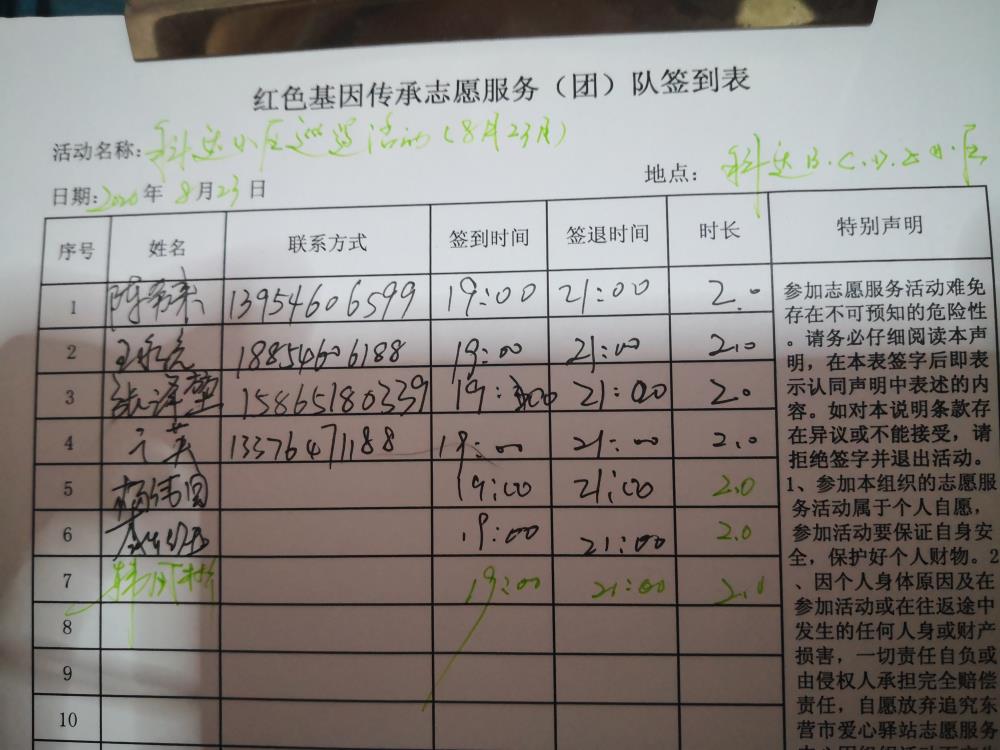 红色基因传承志愿服务（团）队签到表
活动名称:科达小区巡逻活动(8月23月)
日期:2020年8月23日
地点：科达B.C.D.小区
序号 姓名 联系方式 签到时间 签退时间 时长 特别声明
1 13954606599 19:00 21:00 2.0
2 18854606188 19:00 21:00 2.0
3 张泽堃 15865180339 19:00 21:00 2.0
4 英 13376471188 19:00 21:00 2.0
5 杨伟国 19:00 21:00 2.0
6 19:00 21:00 2.0
7 韩 19:00 21:00 2.0
8
9
10
参加志愿服务活动难免
存在不可预知的危险性
。请务必仔细阅读本声
明，在本表签字后即表
示认同声明中表述的内
容。如对本说明条款存
在异议或不能接受，请
拒绝签字并退出活动。
1、参加本组织的志愿服
务活动属于个人自愿，
参加活动要保证自身安
全，保护好个人财物。2
、因个人身体原因及在
参加活动或在往返途中
发生的任何人身或财产
损害，一切责任自负或
由侵权人承担完全赔偿
责任，自愿放弃追究东
营市爱心驿站志愿服务